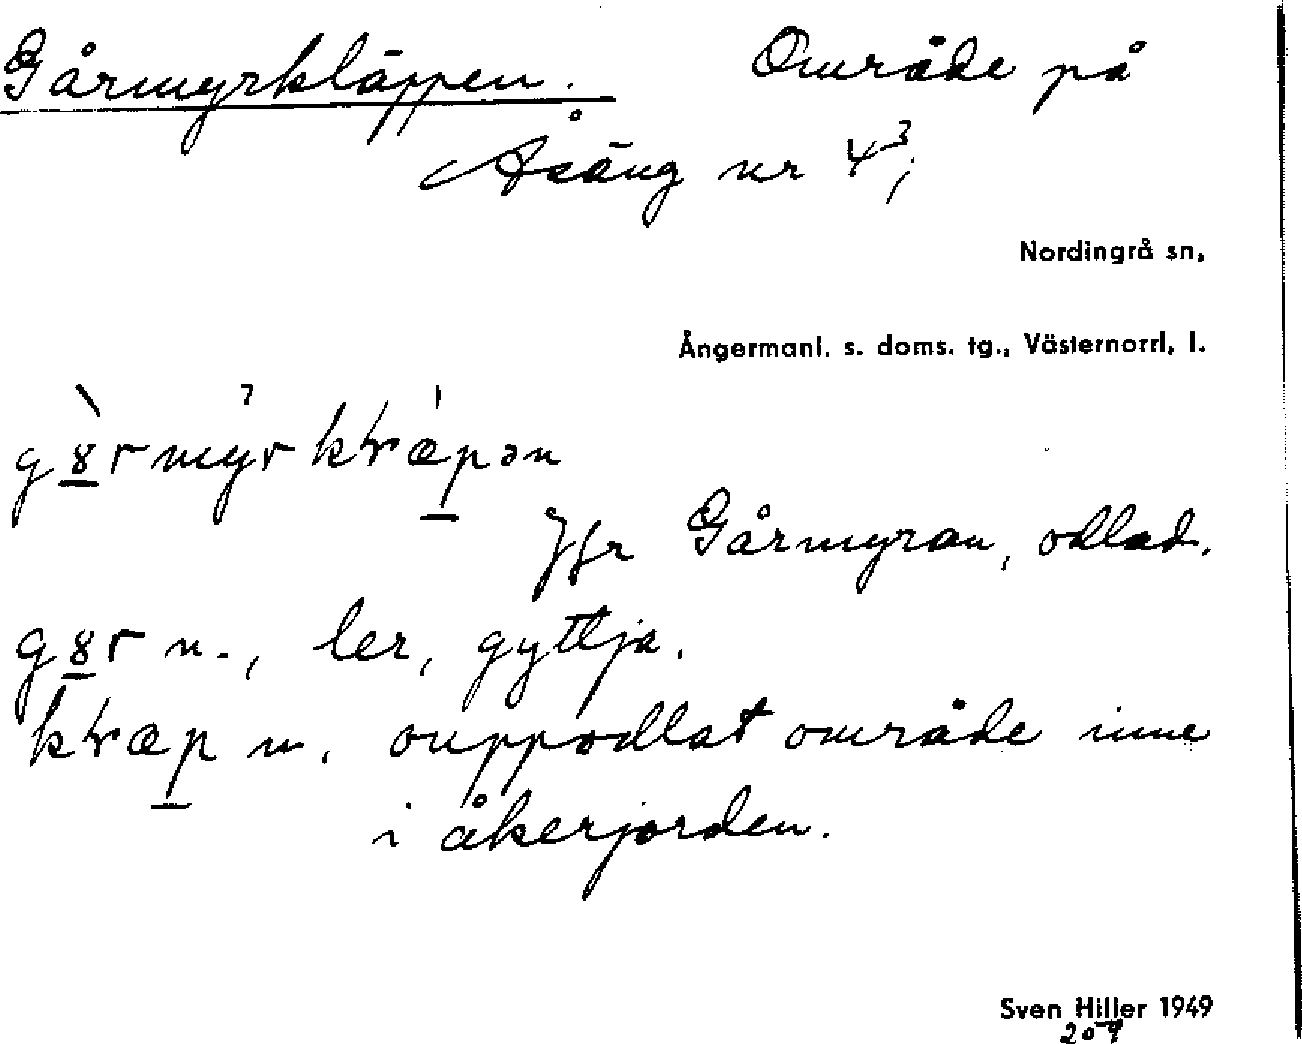 Gårmyrkläppen. Område på
Åsäng nr 4³;
Nordingrå sn,
Ångermanl. s. doms. tg., Västernorrl. l.
Jfr Gårmyran, odlad.
n., ler, gyttja.
m. ouppodlat område inne
i åkerjorden.
Sven Hiller 1949
209